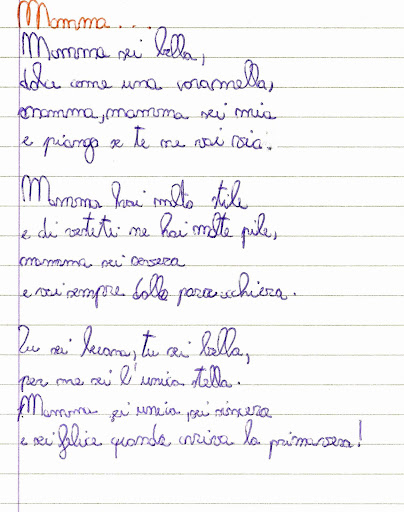 Mamma...
Mamma sei bella,
dolce come una caramella,
mamma, mamma sei mia
e piango se te ne vai via.
Mamma hai molto stile
e di vestiti ne hai molte pile,
mamma sei severa
e vai sempre dalla parrucchiera.
Tu sei buona, tu sei bella,
per me sei l'unica stella.
Mamma sei unica sei sincera
e sei felice quando arriva la primavera!